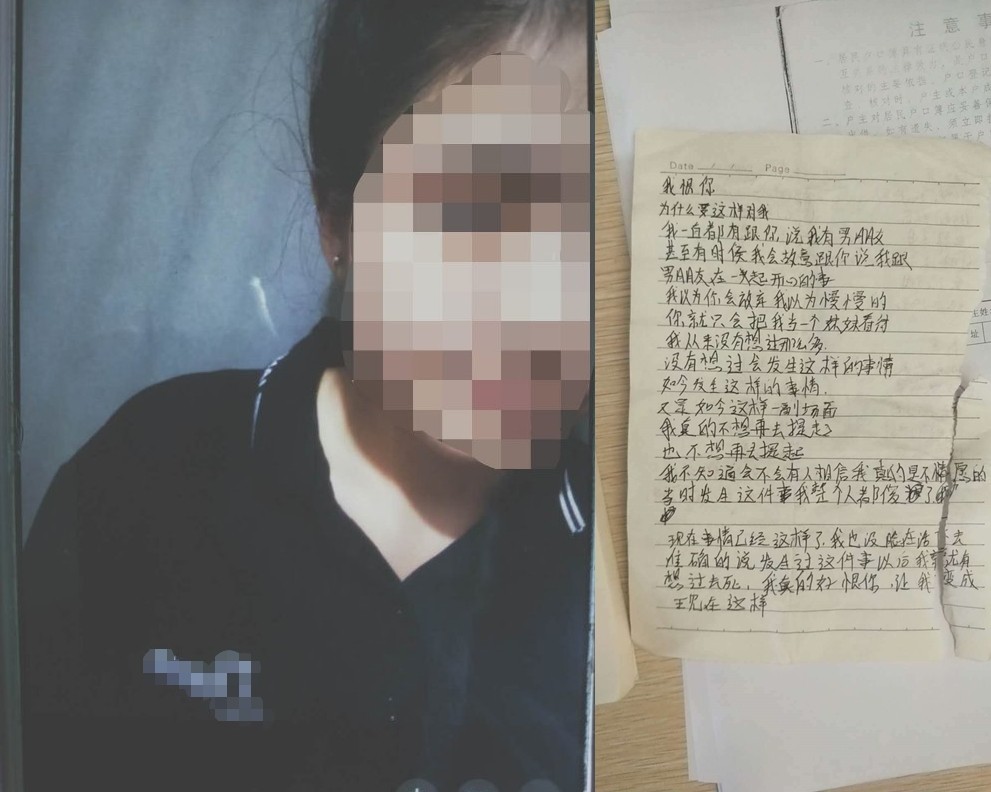 注意事
Date / / Page
我恨你
为什么要这样对我
我一直都有跟你说我有男朋友
甚至有时候我会故意跟你说我跟
男朋友在一起开心的事
我以为你会放弃我以为慢慢的
你就只会把我当一个妹妹看待
我从来没有想过那么多
没有想过会发生这样的事情
如今发生这样的事情
又是如今这样一副场面
我真的不想再去提起
也不想再去提起
我不知道会不会有人相信我真的是不情愿的
当时发生这件事我整个人都傻了
现在事情已经这样了我也没脸在活下去
准确的说发生过这件事以后我就有
想过去死,我真的好恨你,让我变成
现在这样